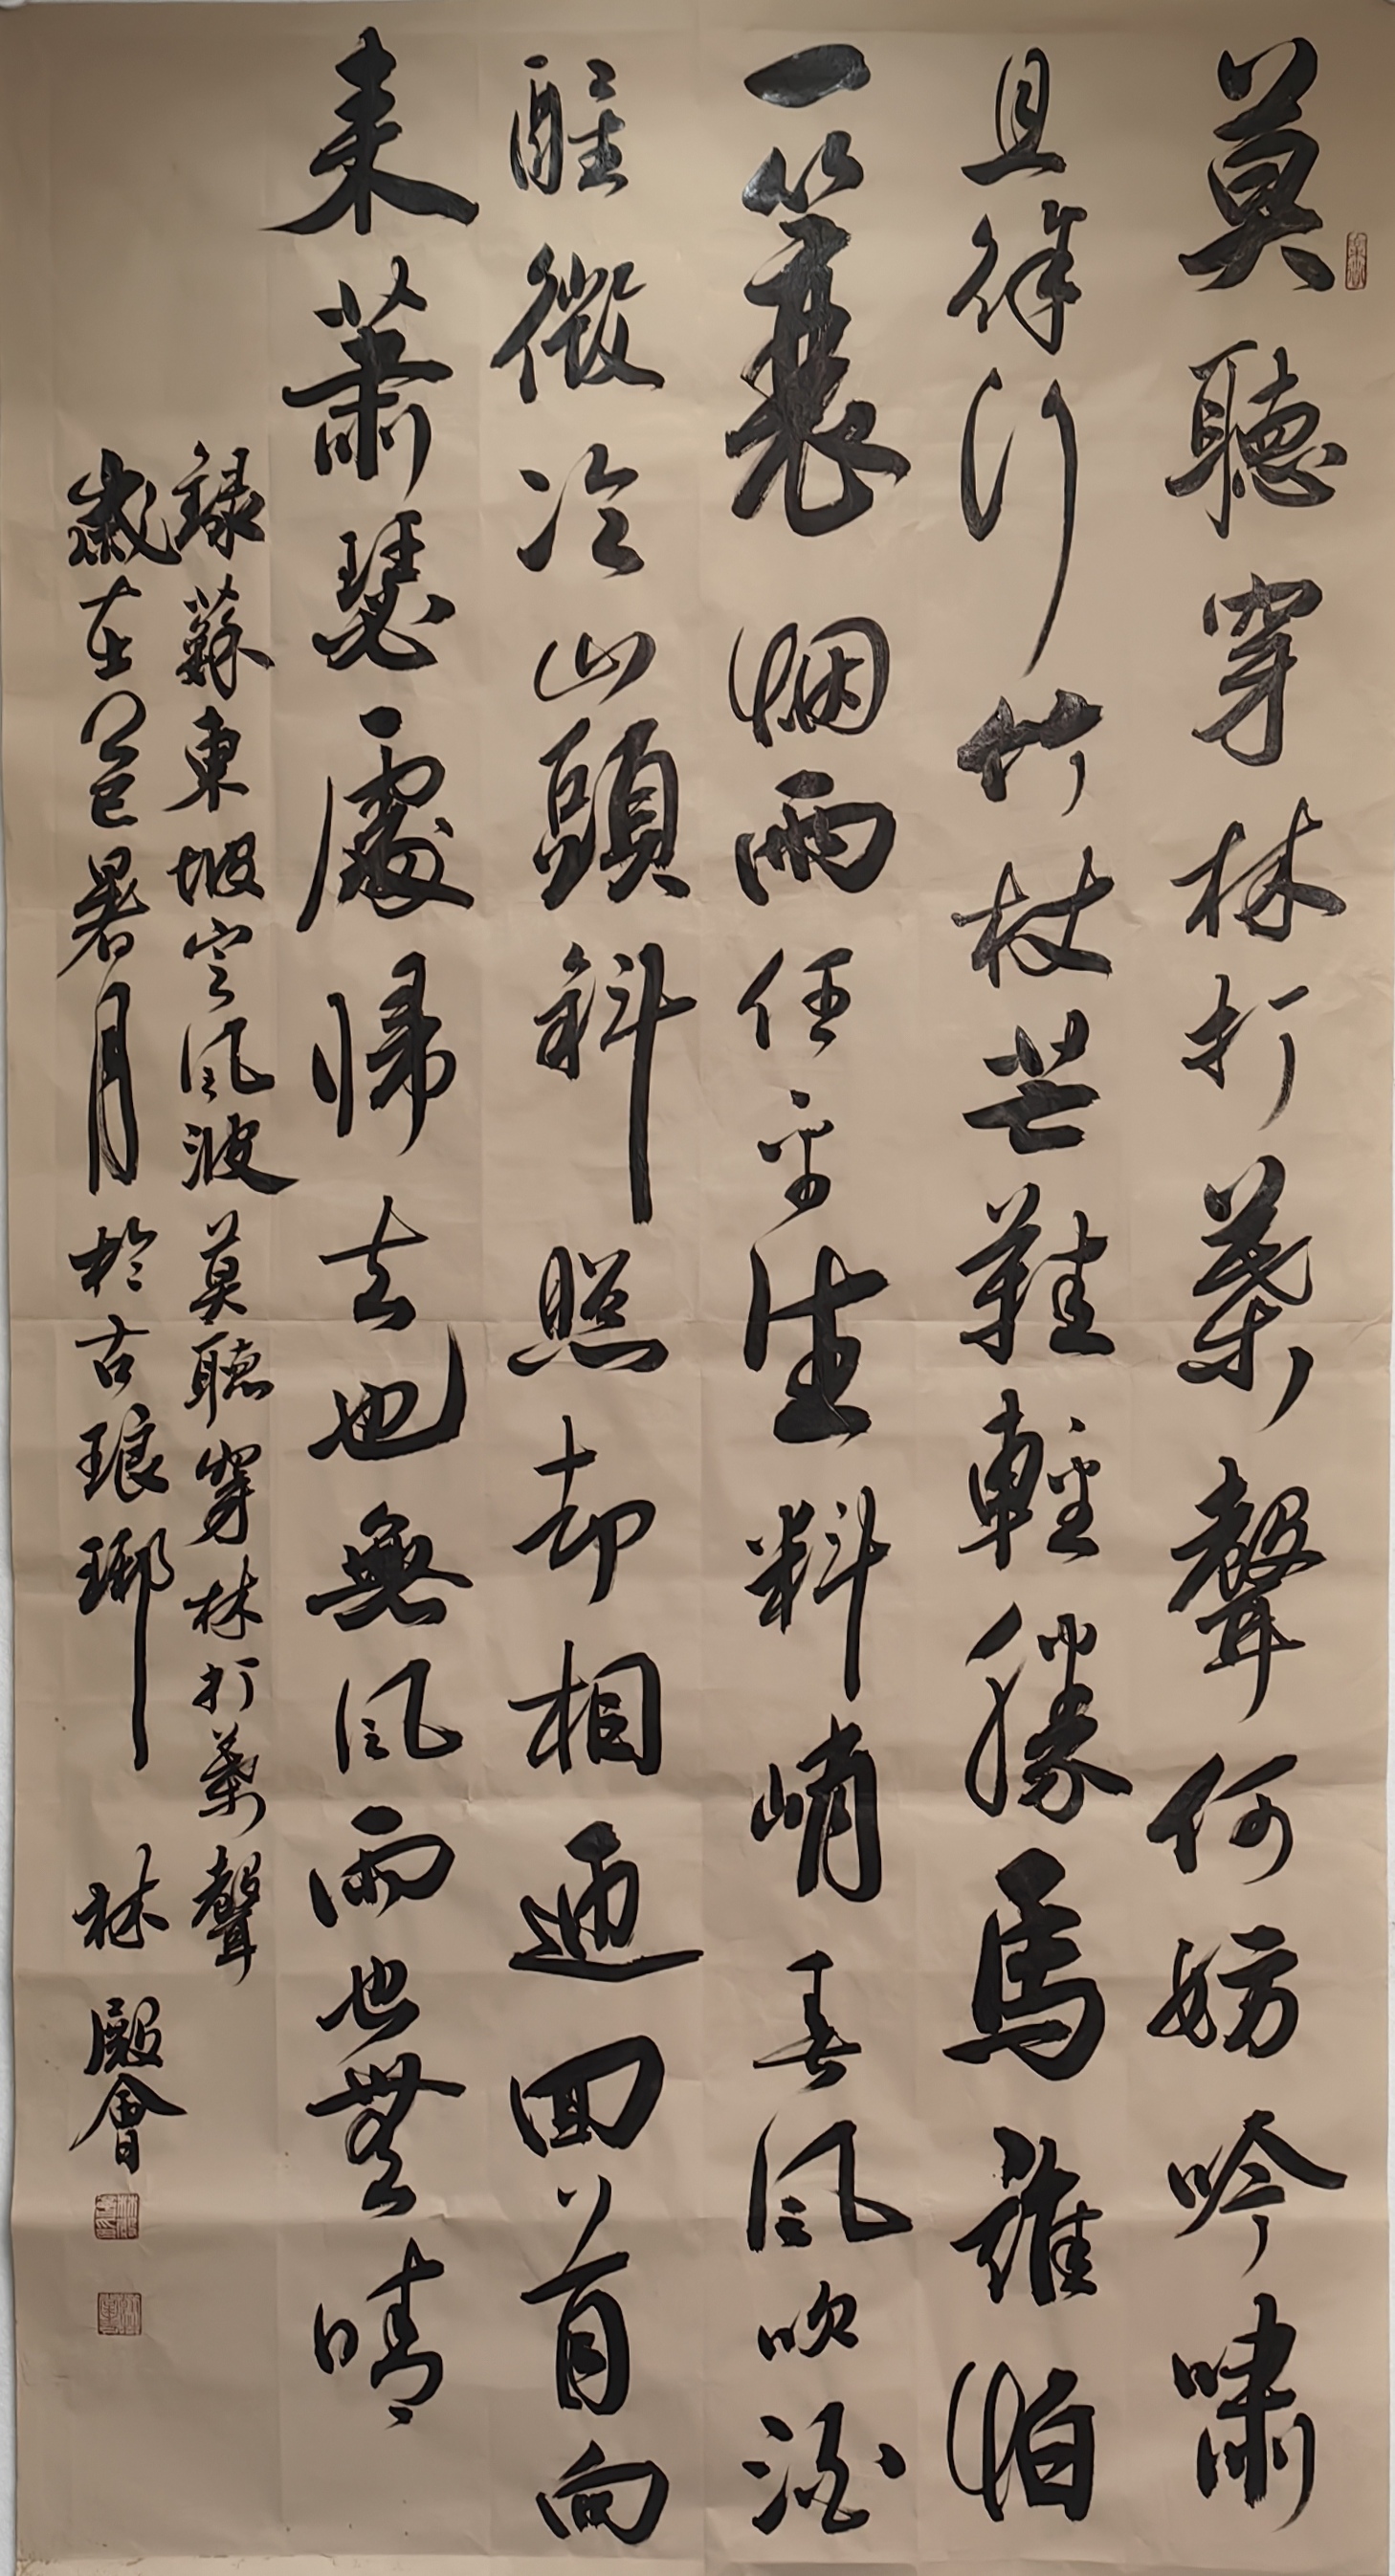 莫聽穿林打葉聲何妨吟嘯
且徐行竹杖芒鞋輕勝馬誰怕
一蓑烟雨任平生料峭春風吹酒
醒微冷山頭斜照却相迎回首向
来蕭瑟處歸去也無風雨也無晴
錄蘇東坡定風波莫聽穿林打葉聲
歲在乙巳暑月於古琅琊 林殿會